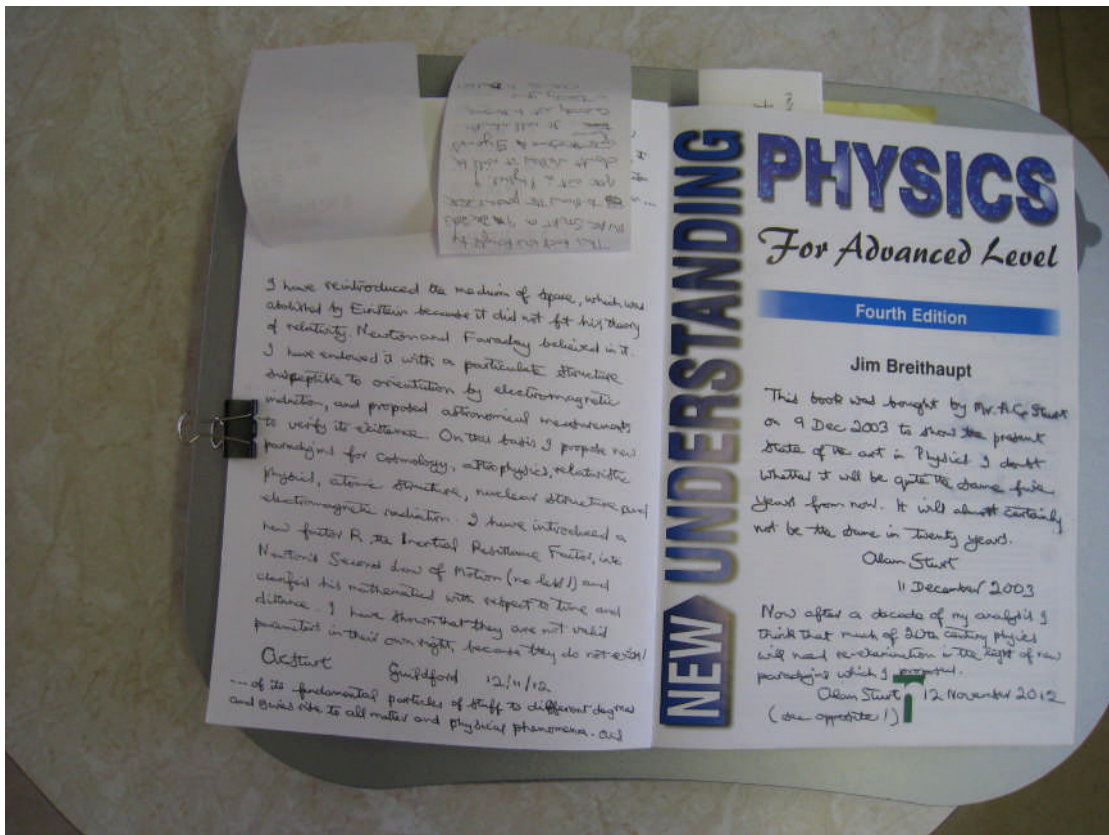 I have reintroduced the medium of space, which was
abolished by Einstein because it did not fit his theory
of relativity. Newton and Faraday believed in it.
I have endowed it with a particulate structure
susceptible to orientation by electromagnetic
induction, and proposed astronomical measurements
to verify its existence. On this basis I propose new
paradigms for cosmology, astrophysics, relativistic
physics, atomic structure, nuclear structure and
electromagnetic radiation. I have introduced a
new factor R, the Inertial Resistance Factor, into
Newton's Second Law of Motion (no less!) and
clarified his mathematics with respect to time and
distance. I have shown that they are not valid
parameters in their own right, because they do not exist!
ACSturt Guildford 12/11/12
....of its fundamental particles of stuff to different degrees
and gives rise to all matter and physical phenomena. ACS
NEW UNDERSTANDING
PHYSICS
For Advanced Level
Fourth Edition
Jim Breithaupt
This book was bought by Mr. A.C. Sturt
on 9 Dec 2003 to show the present
state of the art in Physics I doubt
whether it will be quite the same five
years from now. It will almost certainly
not be the same in twenty years.
Alan Sturt
11 December 2003
Now after a decade of my analysis I
think that much of 20th century physics
will need re-examination in the light of new
paradigms which I proposed.
Alan Sturt 12 November 2012
(see opposite!)